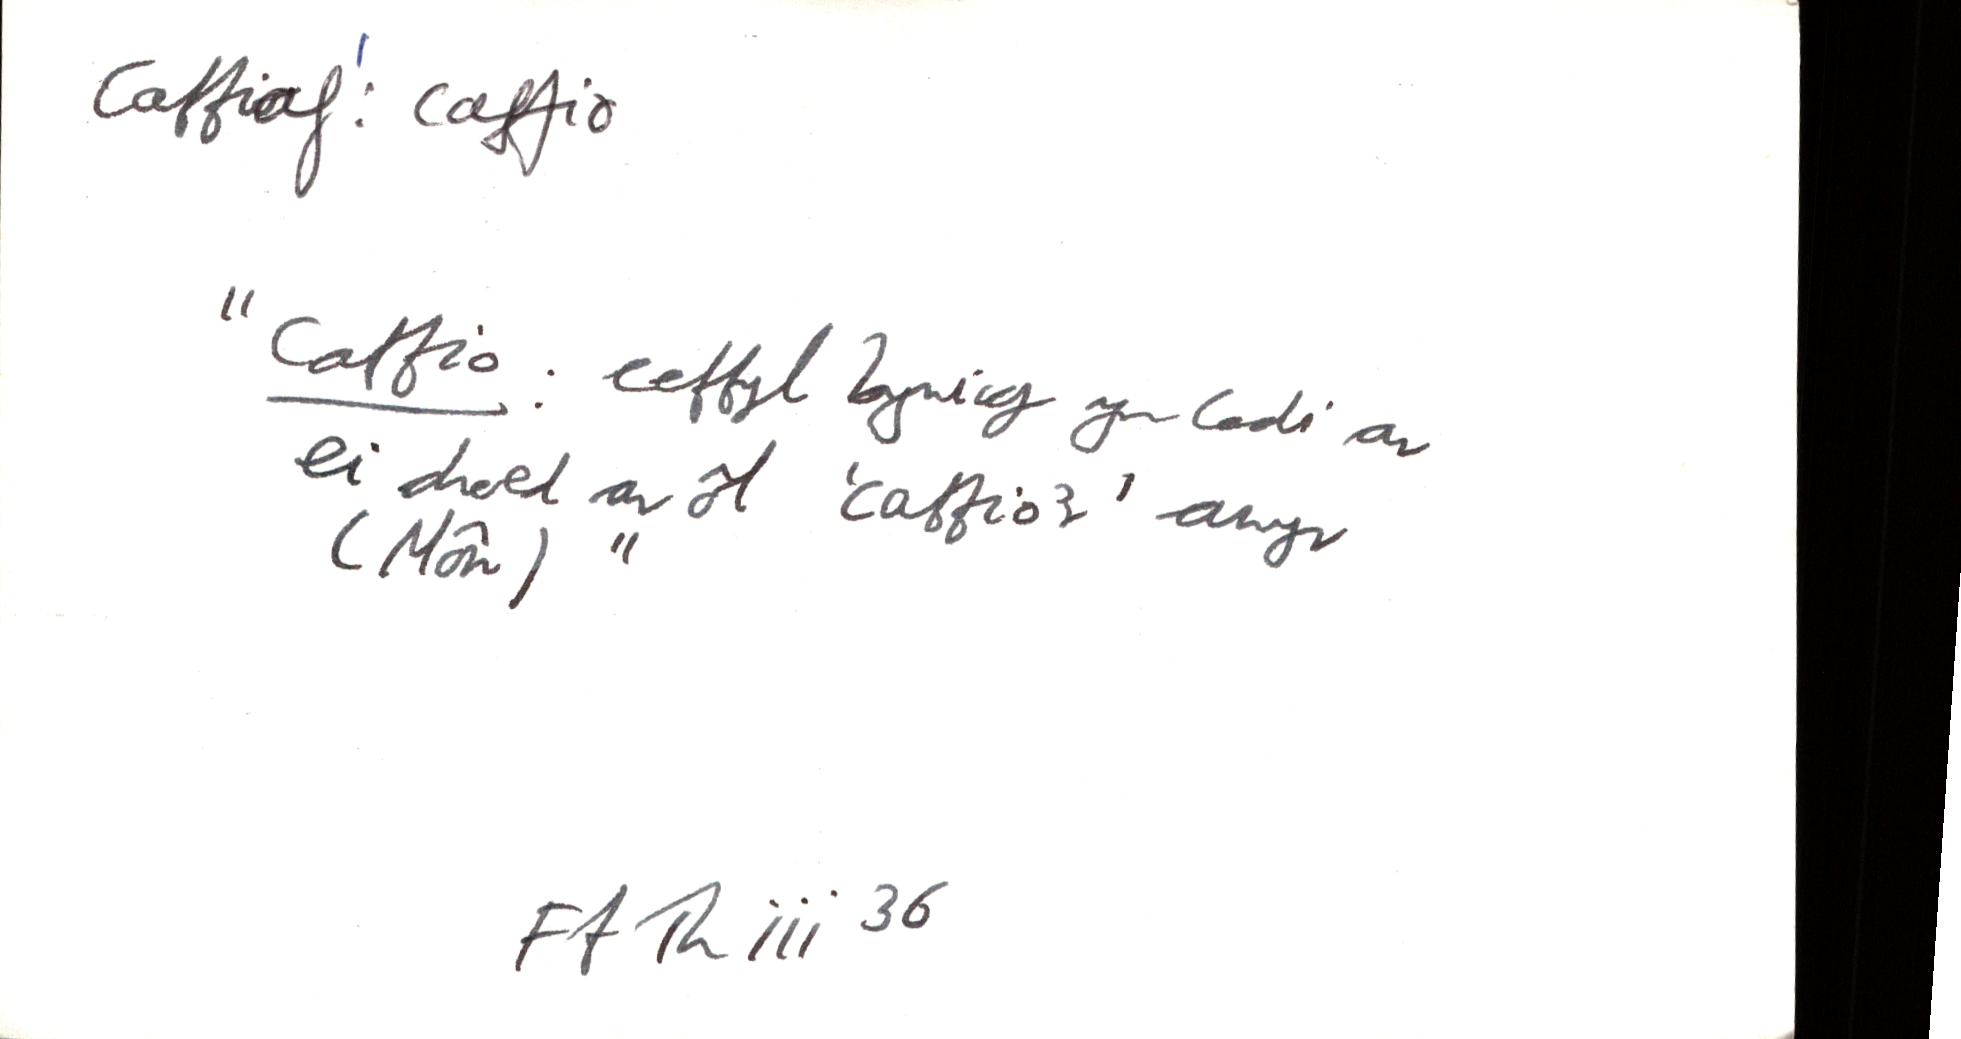 Caffiaf¹: caffio
"Caffio: ceffyl bynnag yn codi ar
ei droed ar ôl 'caffio' awyr
(Môn)"
Ff Th iii 36